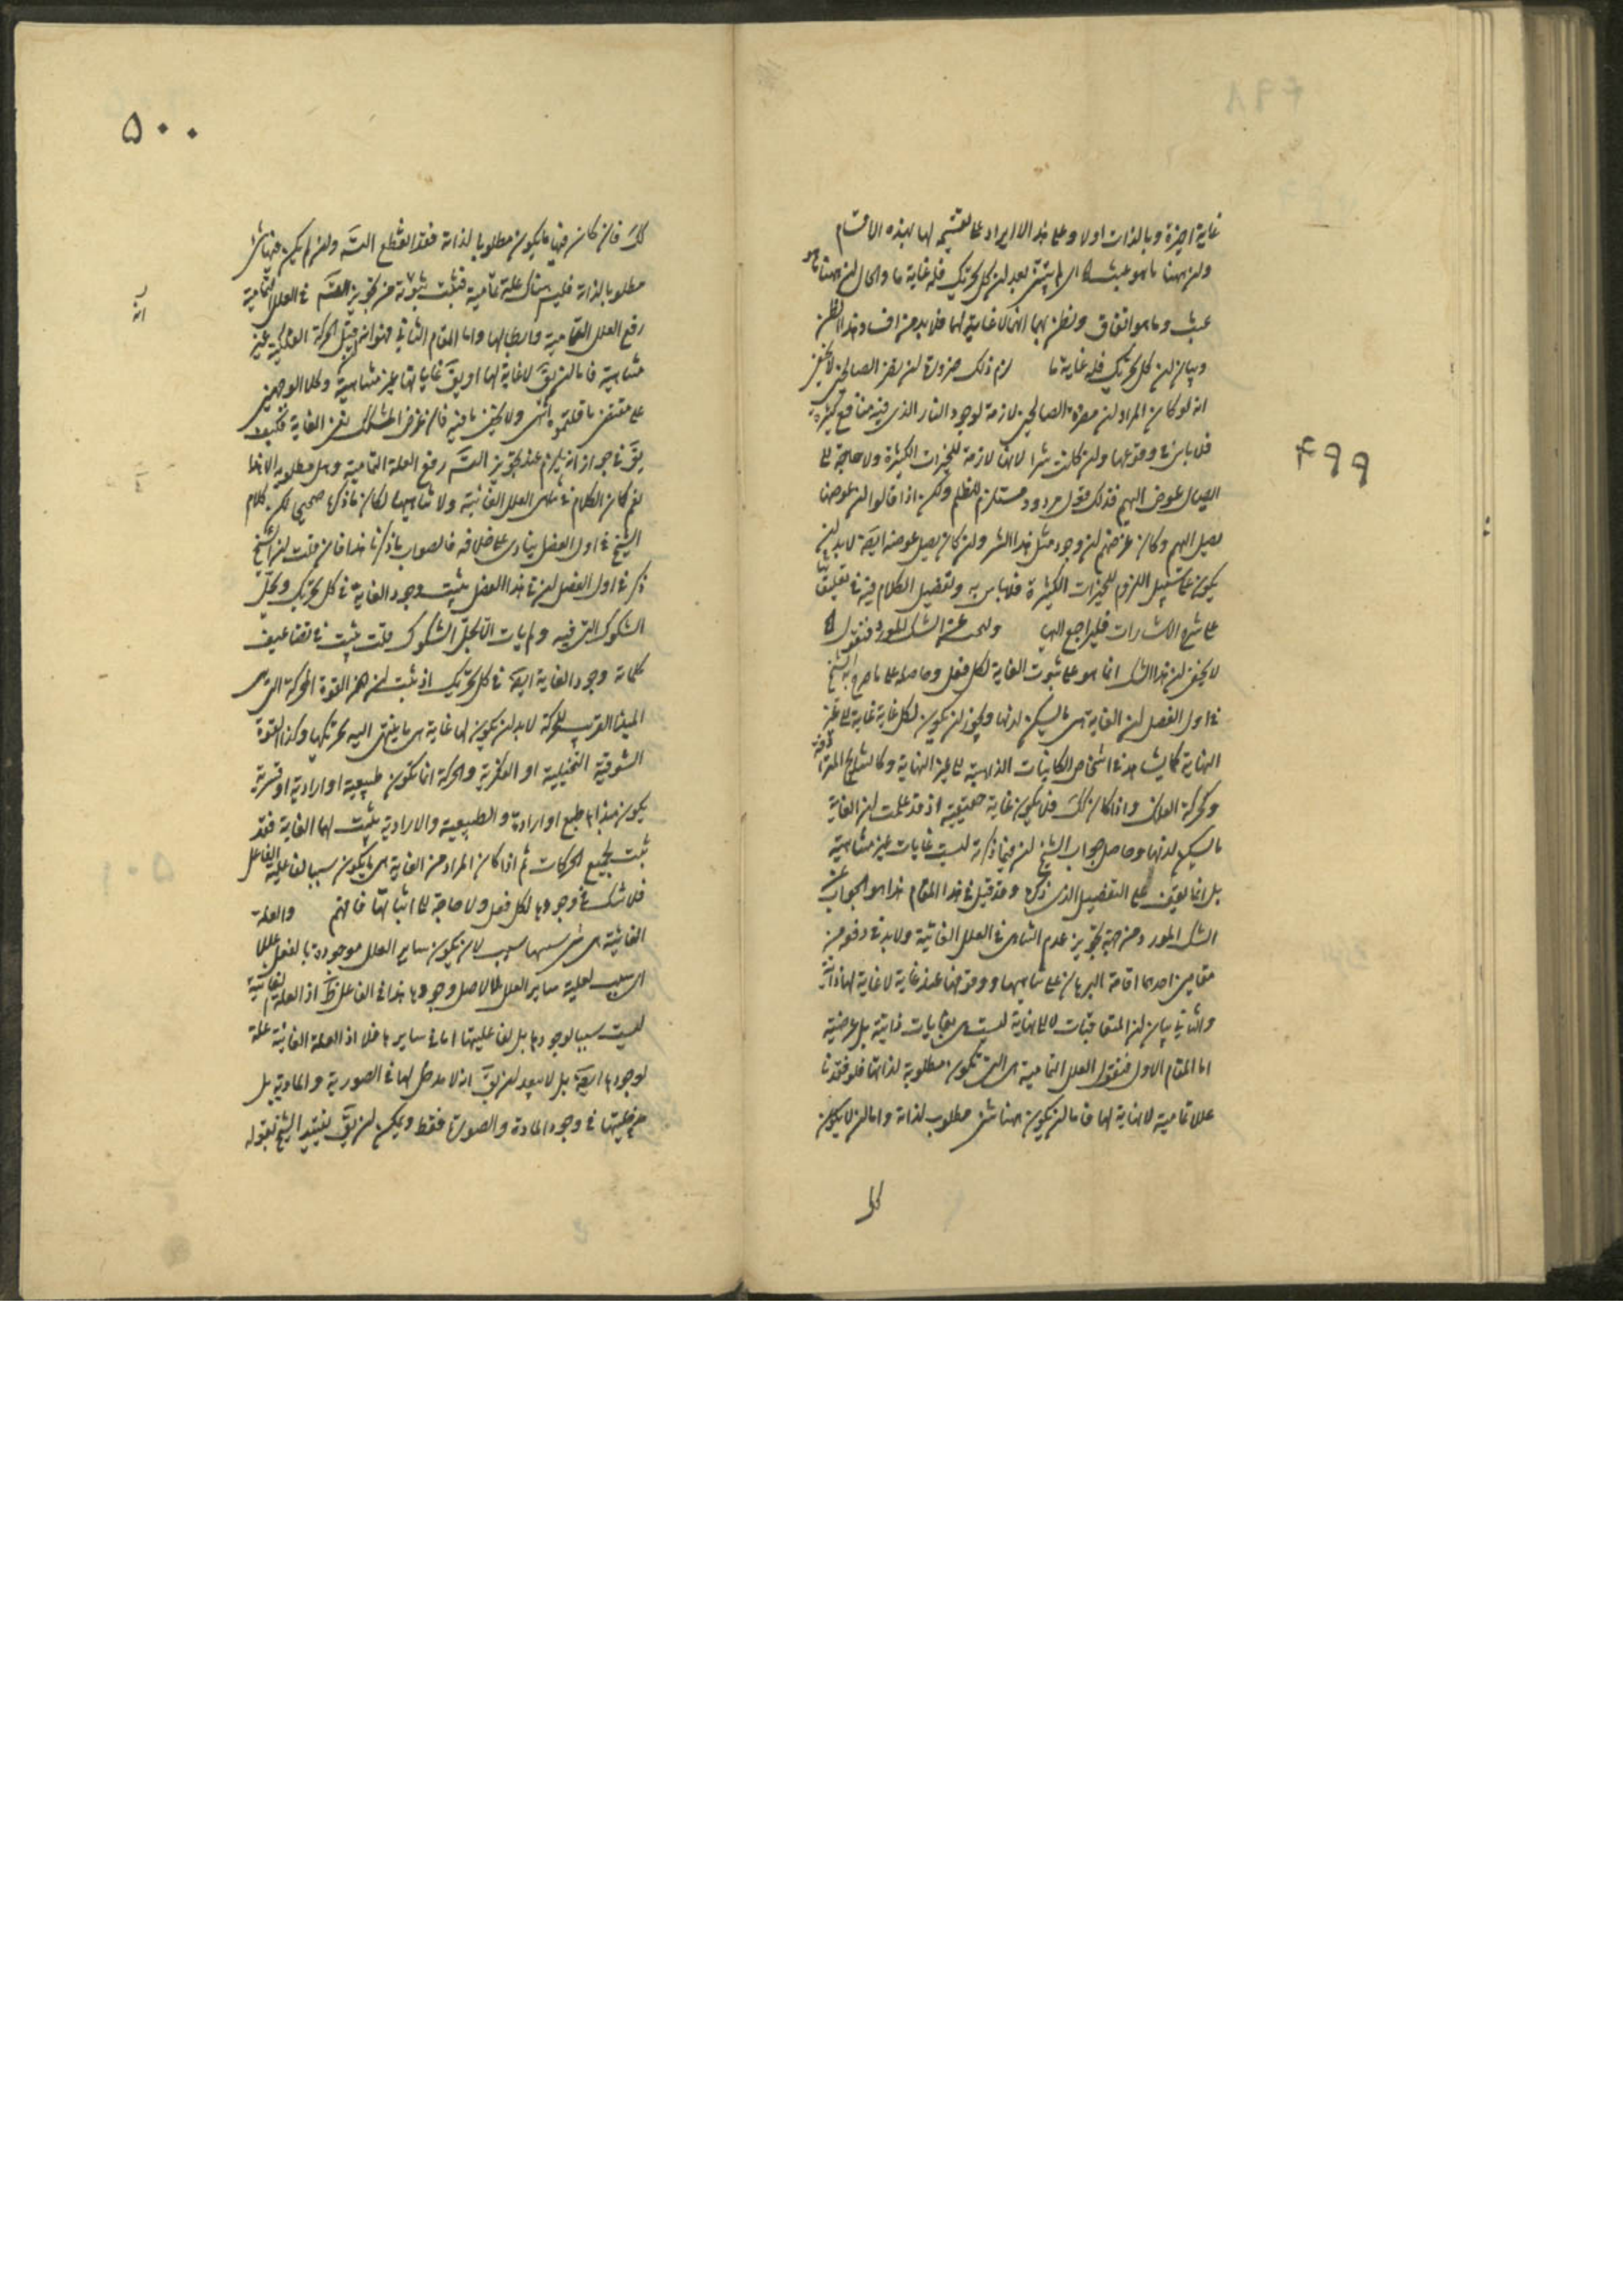 ۴۹۹
غاية اخيرة وبالذات اولا وعلى هذا لا ايراد على تقسيمه لها لهذه الاقسام
ولان ههنا ما هو عبث اى لم يتبين بعد لان كل تحريك فله غاية ما والحال ان ههنا ما هو
عبث وما هو اتفاق ونظن بهما انهما لا غاية لهما فلا بد من افساد هذا الظن
وبيان ان كل تحريك فله غاية ما لزم ذلك ضرورة لان يضر الصالحين لا يخفى
انه لو كان المراد ان مضرة الصالحين لازمة لوجود النار الذى فيه منافع كثيرة
فلا باس فى وقوعها وان كانت شرا لانها لازمة للخيرات الكثيرة ولا حاجة الى
ايصال عوض اليهم فذلك قول مردود مستلزم للظلم ولكن اذا قالوا ان عوضها
يصل اليهم وكان غرضهم ان وجود مثل هذا الشر وان كان يصل عوضه ايضا لا بد ان
يكون على سبيل اللزوم للخيرات الكثيرة فلا باس به وتفصيل الكلام فيه فى تعليقاتنا
على شرح الاشارات فليراجع اليها ولنبحث عن الشك المورد فنقول اه
لا يخفى ان هذا الشك انما هو على ثبوت الغاية لكل فعل وحاصله على ما صرح به الشيخ
فى اول الفصل ان الغاية هى ما يسكن لديها ويجوز ان يكون لكل غاية غاية الى غير
النهاية كما يشاهد فى اشخاص الكاينات الذاهبة الى غير النهاية وكالنتايج المترادفة
وكحركة الفلك واذا كان كك فلا يكون غاية حقيقية اذ قد علمت ان الغاية
ما يسكن لديها وحاصل جواب الشيخ ان فيما ذكرته ليست غايات غير متناهية
بل انما يعرف على التفصيل الذى ذكره وقد قيل فى هذا المقام هذا هو الجواب عن
الشك المورد من جهة تجويز عدم التناهى فى العلل الغائية ولا بد فى دفعه من
مقامين احدهما اقامة البرهان على تناهيها ووقوفها عند غاية لا غاية لها ذاتية
والثانى بيان ان المتعاقبات لا الى نهاية ليست هى بغايات ذاتية بل عرضية
اما المقام الاول فنقول العلل التمامية هى التى تكون مطلوبة لذاتها فلو فقدنا
عللا تمامية لا نهاية لها فاما ان يكون هنا شئ مطلوب لذاته واما ان لا يكون
كك
۵۰۰
كك فان كان فيها ما يكون مطلوبا لذاته فقد انقطع التس وان لم يكن فيها شئ
مطلوبا لذاته فليس هناك علة تمامية فثبت ثبوته من تجويز التس فى العلل التمامية
رفع العلل التمامية وابطالها واما المقام الثانى فهو انه قيل الحركة الفلكية غير
متناهية فاما ان يق لا غاية لها او يق غاياتها غير متناهية وكلا الوجهين
على مقتضى ما قلتموه انتهى ولا يخفى ما فيه فان غرض المشكك نفى الغاية فكيف
يق فى جوابه انه يلزم عند تجويز التس رفع العلة التمامية وهل مطلوبه الا هذا
نعم كان الكلام فى تناهى العلل الغائية ولا تناهيها لكان ما ذكره صحيحا لكن كلام
الشيخ فى اول الفصل ينادى على خلافه فالصواب ما ذكرنا هذا فان قلت ان الشيخ
ذكر فى اول الفصل ان فى هذا الفصل يثبت وجود الغاية فى كل تحريك ويحل
الشكوك التى فيه ولم يات الا بحل الشكوك قلت يثبت فى تضاعيف
كلماته وجود الغاية ايضا فى كل تحريك اذ ثبت ان هذه القوة المحركة التى هى
المبدا القريب للحركة لا بد ان يكون لها غاية هى ما ينتهى اليه تحريكها وكذا القوة
الشوقية التخيلية او الفكرية والحركة انما تكون طبيعية او ارادية او قسرية
يكون مبداها طبع او ارادة والطبيعية والارادية يثبت لها الغاية فقد
ثبت لجميع الحركات ثم اذا كان المراد من الغاية هى ما يكون سببا لفاعلية الفاعل
فلا شك فى وجودها لكل فعل ولا حاجة الى اثباتها فافهم والعلة
الغائية هى شئ سببها سبب لان يكون ساير العلل موجودة بالفعل عللا
اى سبب لعلية ساير العلل لا لاصل وجودها هذا فى الفاعل ظ اذ العلة الغائية
ليست سببا لوجوده بل لفاعليتها اما فى سايرها فلا اذ العلة الغائية علة
لوجودها ايضا بل لا يبعد ان يق انه لا مدخل لها فى الصورية والمادية بل
مدخليتها فى وجود المادة والصورة فقط ويمكن ان يق تقييد الشيخ بقوله